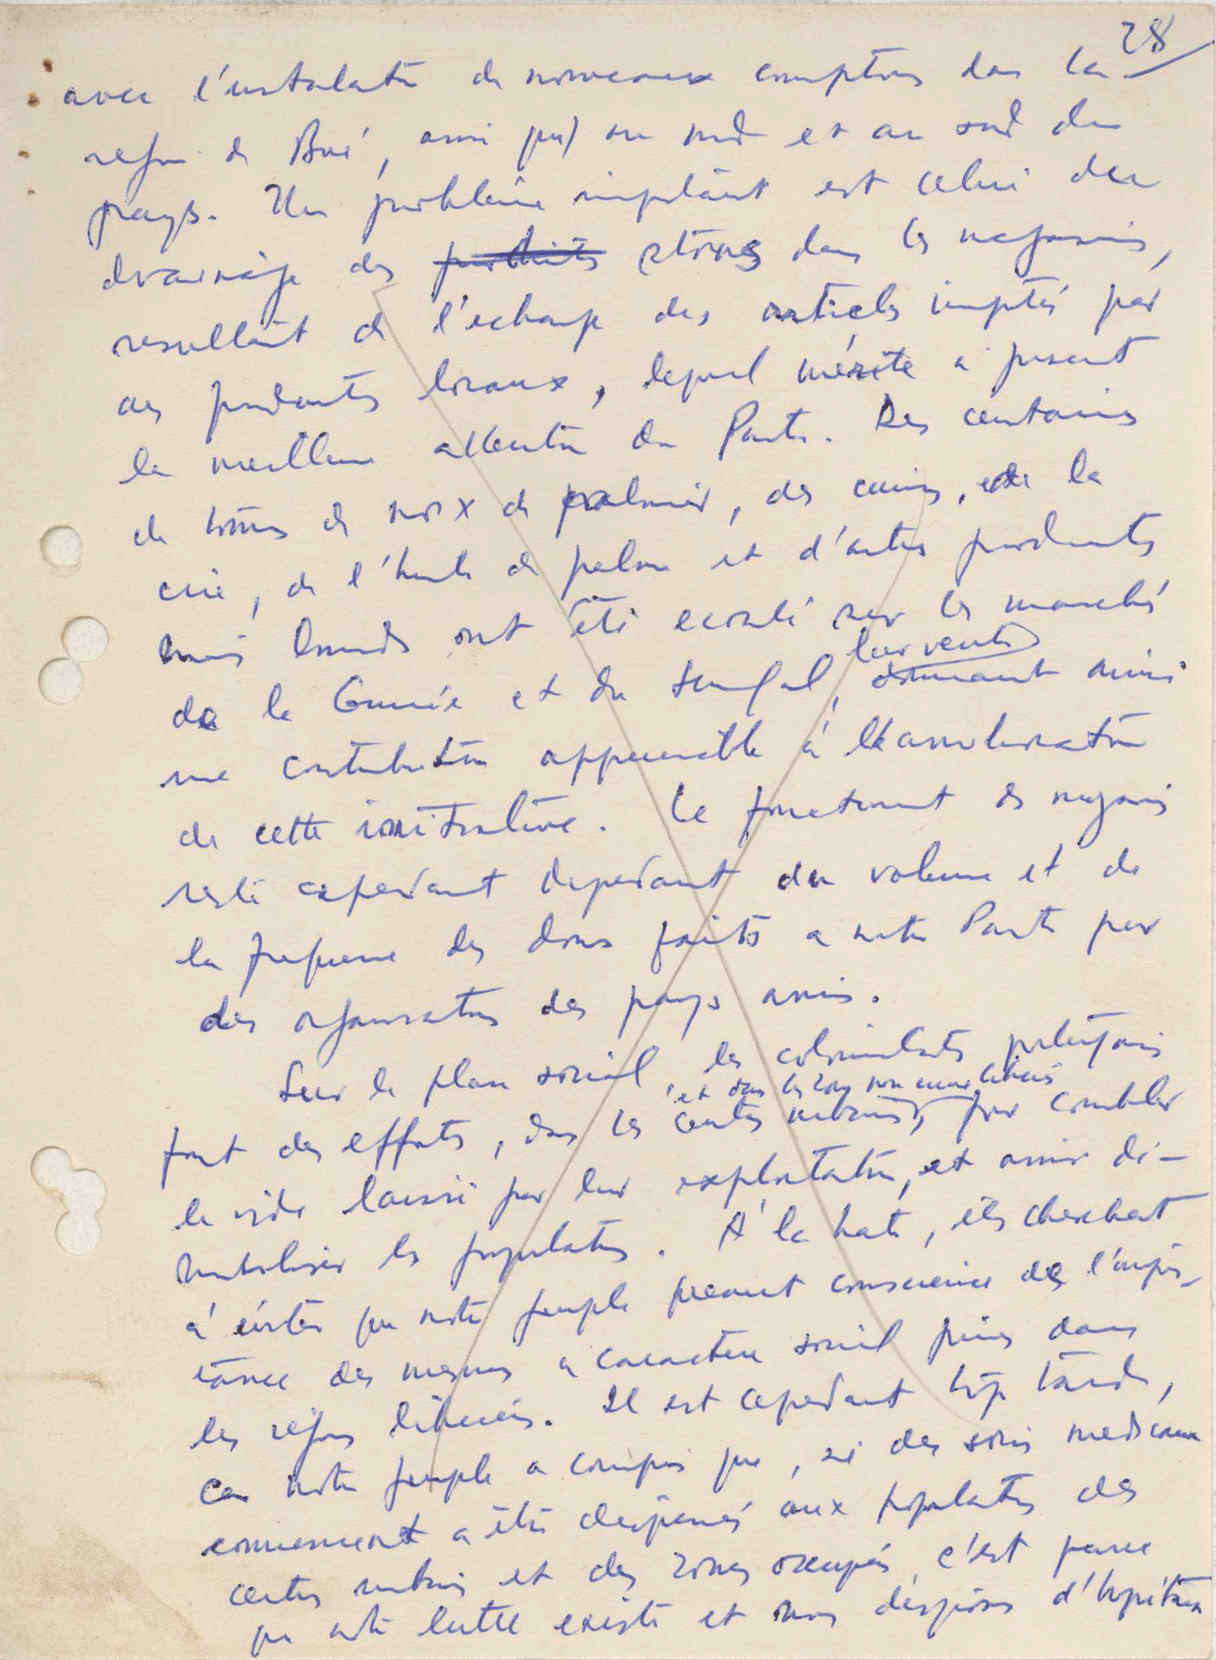 28
avec l'installation de nouveaux comptoirs dans la
région de Boé, ainsi qu'au nord et au sud du
pays. Un problème important est celui du
drainage des produits stocks dans les magasins,
resultant de l'echange des articles importés par
des produits locaux, lequel mérite à present
la meilleure attention du Parti. Des centaines
de tonnes de noix de palmier, des cuirs, de la
cire, de l'huile de palme et d'autres produits
moins lourds ont été ecoulé sur les marchés
leur vente
de la Guinée et du Senegal, donnant ainsi
une contribution appreciable à l'amelioration
de cette initiative. Le fonctionnement des magasins
reste cependant dependant du volume et de
la frequence des dons faits a notre Parti par
des organisations des pays amis.
Sur le plan social, les colonialistes portugais
et dans les zones non encore liberées
font des efforts, dans les centres urbains, pour combler
le vide laissé par leur exploitation, et ainsi dé-
mobiliser les populations. A la hate, ils cherchent
à éviter que notre peuple prenant conscience de l'impor-
tance des mesures a caractère social prises dans
les régions liberées. Il est cependant trop tard,
car notre peuple a compris que, si des soins medicaux
commencent a être dispensés aux populations des
centres urbains et des zones occupées, c'est parce
que notre lutte existe et nous disposons d'hopitaux